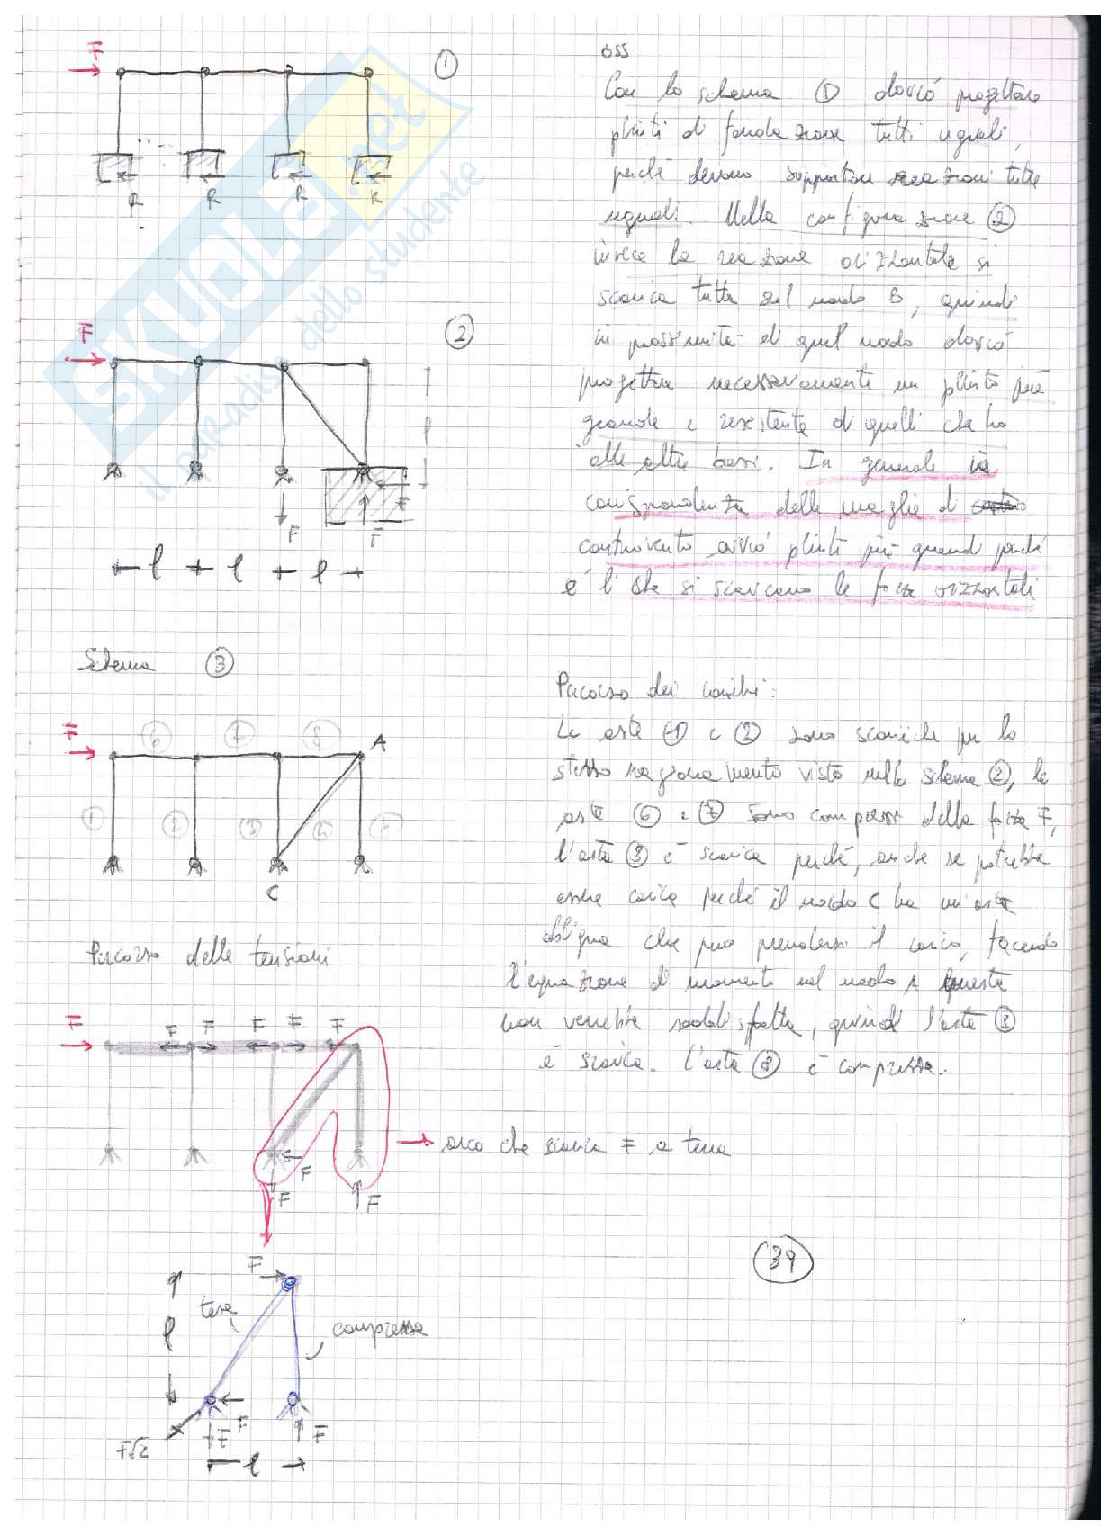 F
①
R R R R
oss
Con lo schema ① dovrò progettare
plinti di fondazione tutti uguali,
perché devono supportare reazioni tutte
uguali. Nella configurazione ②
invece la reazione orizzontale si
scarica tutta sul nodo B, quindi
in prossimità di quel nodo dovrò
progettare necessariamente un plinto più
grande e resistente di quelli che ho
alle altre basi. In generale in
corrispondenza delle maglie di
controvento avrò plinti più grandi perché
è lì che si scaricano le forze orizzontali
F
②
F F F
l l l
Schema ③
F
⑥ ⑦ ⑧ A
① ② ③
C
Percorso dei carichi:
Le aste ① e ② sono scariche per lo
stesso ragionamento visto nello schema ②, le
aste ⑥ e ⑦ sono compresse dalla forza F,
l'asta ③ è scarica perché, anche se potrebbe
essere carica perché il nodo C ha un'asta
obliqua che può prendersi il carico, facendo
l'equazione di momenti nel nodo A questa
non verrebbe soddisfatta, quindi l'asta ③
è scarica. L'asta ⑧ è compressa.
Percorso delle tensioni
F F F F F F
F
F F
arco che scarica F a terra
39
F
tesa
compressa
l
F
F F
F√2
l
SKUOLA.net
il paradiso dello studente